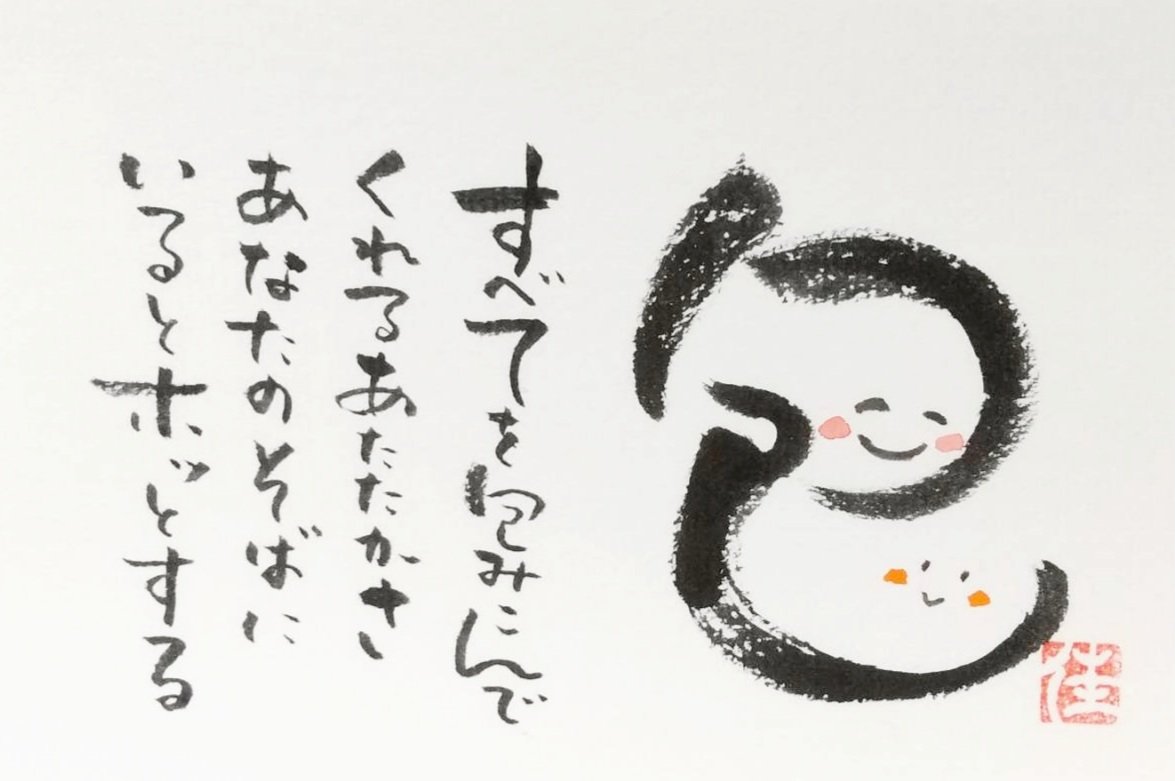 包
すべてを包みこんで
くれるあたたかさ
あなたのそばに
いるとホッとする
佳